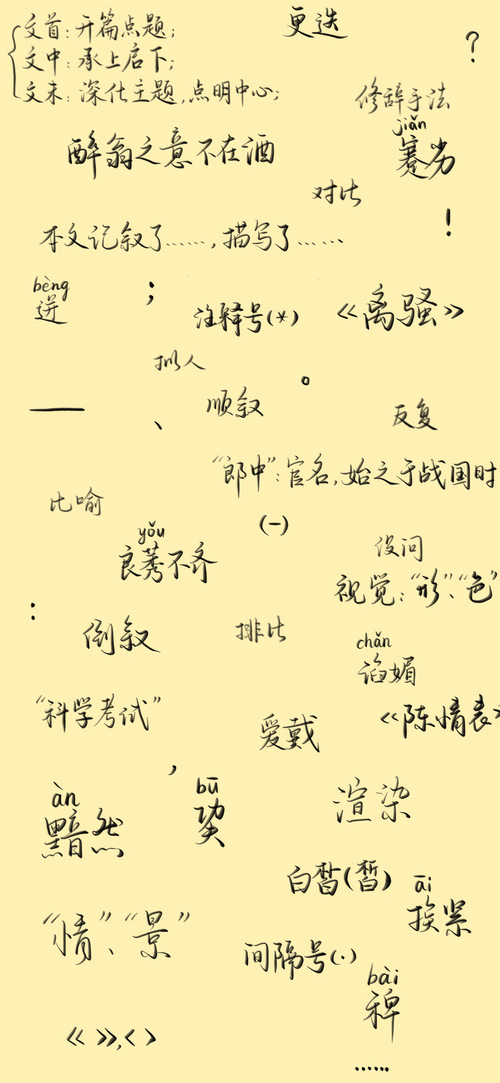 文首：开篇点题；
文中：承上启下；
文末：深化主题，点明中心；
更迭
？
修辞手法
醉翁之意不在酒
jiǎn
蹇劣
对比
！
本文记叙了……，描写了……
bèng
迸
；
注释号(*)
《离骚》
拟人
。
顺叙
——
、
反复
“郎中”：官名，始之于战国时
比喻
(一)
yǒu
良莠不齐
设问
视觉：“形”、“色”
：
倒叙
排比
chǎn
谄媚
“科学考试”
爱戴
《陈情表》
，
àn
黯然
bū
渲染
白皙(晳)
āi
挨紧
“情”、“景”
间隔号(·)
bài
稗
《》，〈〉
……